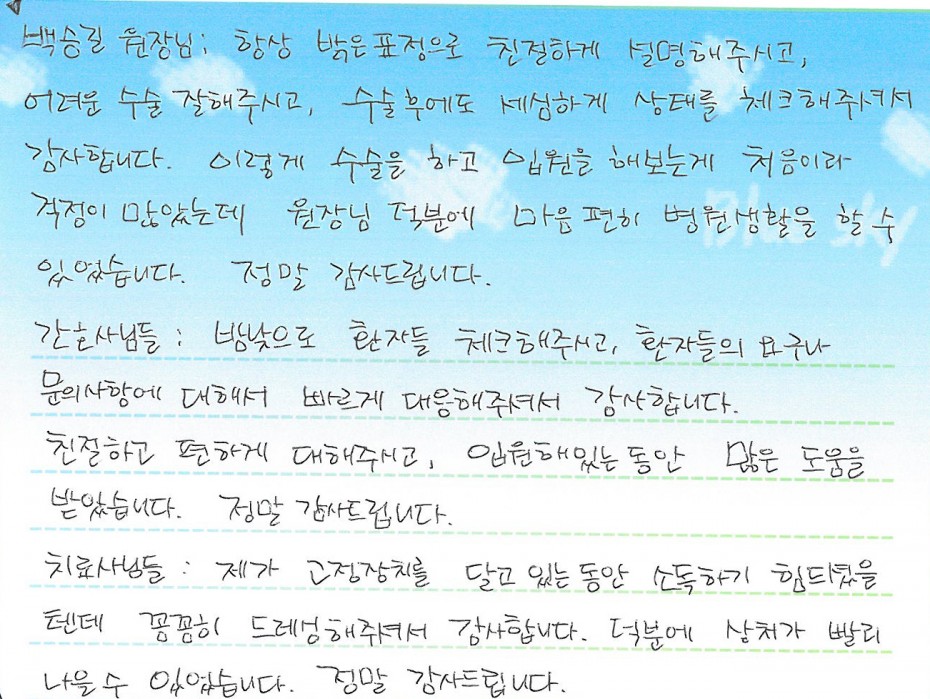 백승길 원장님: 항상 밝은표정으로 친절하게 설명해주시고,
어려운 수술 잘해주시고, 수술후에도 세심하게 상태를 체크해주셔서
감사합니다. 이렇게 수술을 하고 입원을 해보는게 처음이라
걱정이 많았는데 원장님 덕분에 마음 편히 병원생활을 할 수
있었습니다. 정말 감사드립니다.
Blue sky
간호사님들 : 밤낮으로 환자들 체크해주시고, 환자들의 요구나
문의사항에 대해서 빠르게 대응해주셔서 감사합니다.
친절하고 편하게 대해주시고, 입원해있는동안 많은 도움을
받았습니다. 정말 감사드립니다.
치료사님들 : 제가 고정장치를 달고 있는동안 소독하기 힘드셨을
텐데 꼼꼼히 드레싱해주셔서 감사합니다. 덕분에 상처가 빨리
나을수 있었습니다. 정말 감사드립니다.